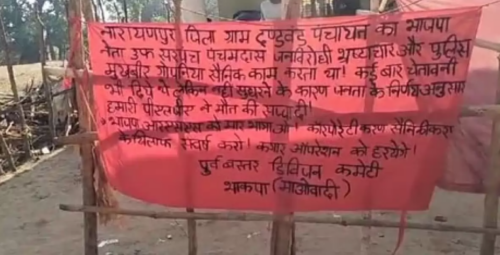 नारायणपुर जिला ग्राम दण्डवन पंचायत का भाजपा
नेता उप सरपंच पंचमदास जनविरोधी भ्रष्टाचार और पुलिस
मुखबीर गोपनिय सैनिक काम करता था! कई बार चेतावनी
भी दिये थे लेकिन नहीं सुधरने के कारण जनता के निर्णय अनुसार
हमारी पीएलजीए ने मौत की सजा दी!
भाजपा आरएसएस को मार भगाओ! कारपोरेटीकरण सैनिकीकरण
के खिलाफ संघर्ष करो! कगार ऑपरेशन को हरायेंगे!
पूर्व बस्तर डिविजन कमेटी
भाकपा (माओवादी)